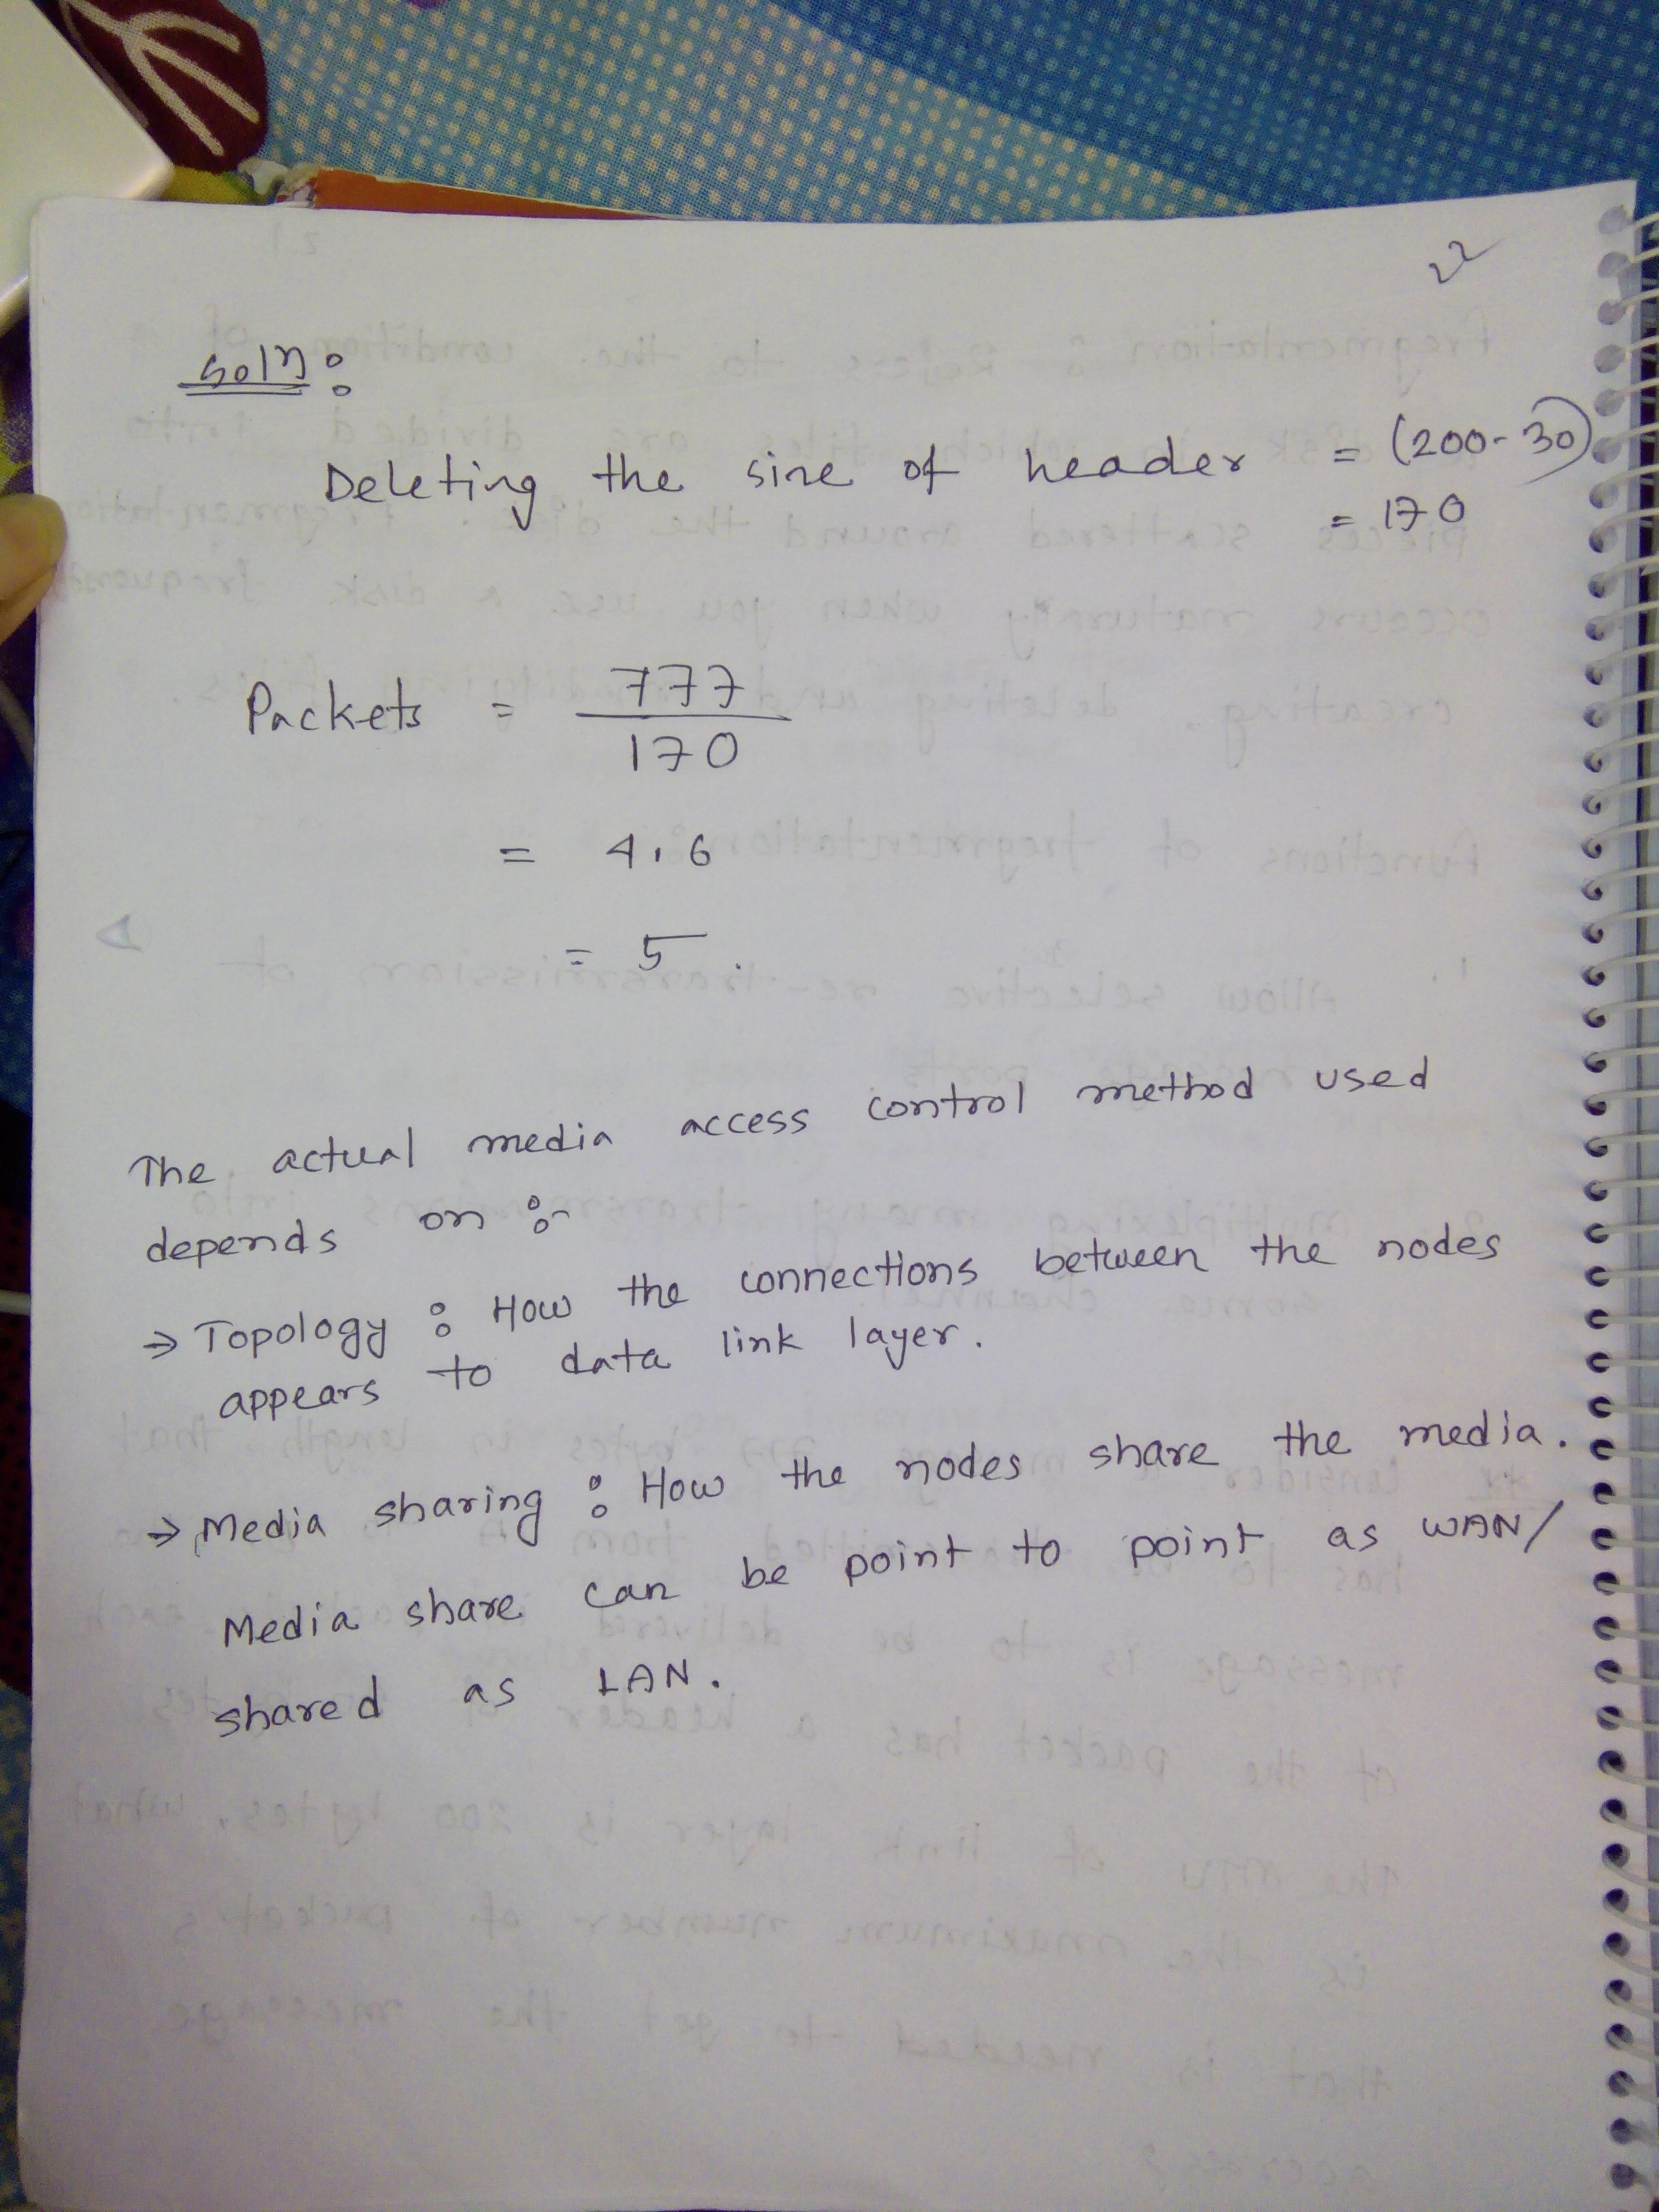 22
Soln:
Deleting the size of header = (200-30)
= 170
Packets = 777
170
= 4.6
= 5.
The actual media access control method used
depends on :-
→ Topology : How the connections between the nodes
appears to data link layer.
→ Media sharing : How the nodes share the media.
Media share can be point to point as WAN/
shared as LAN.